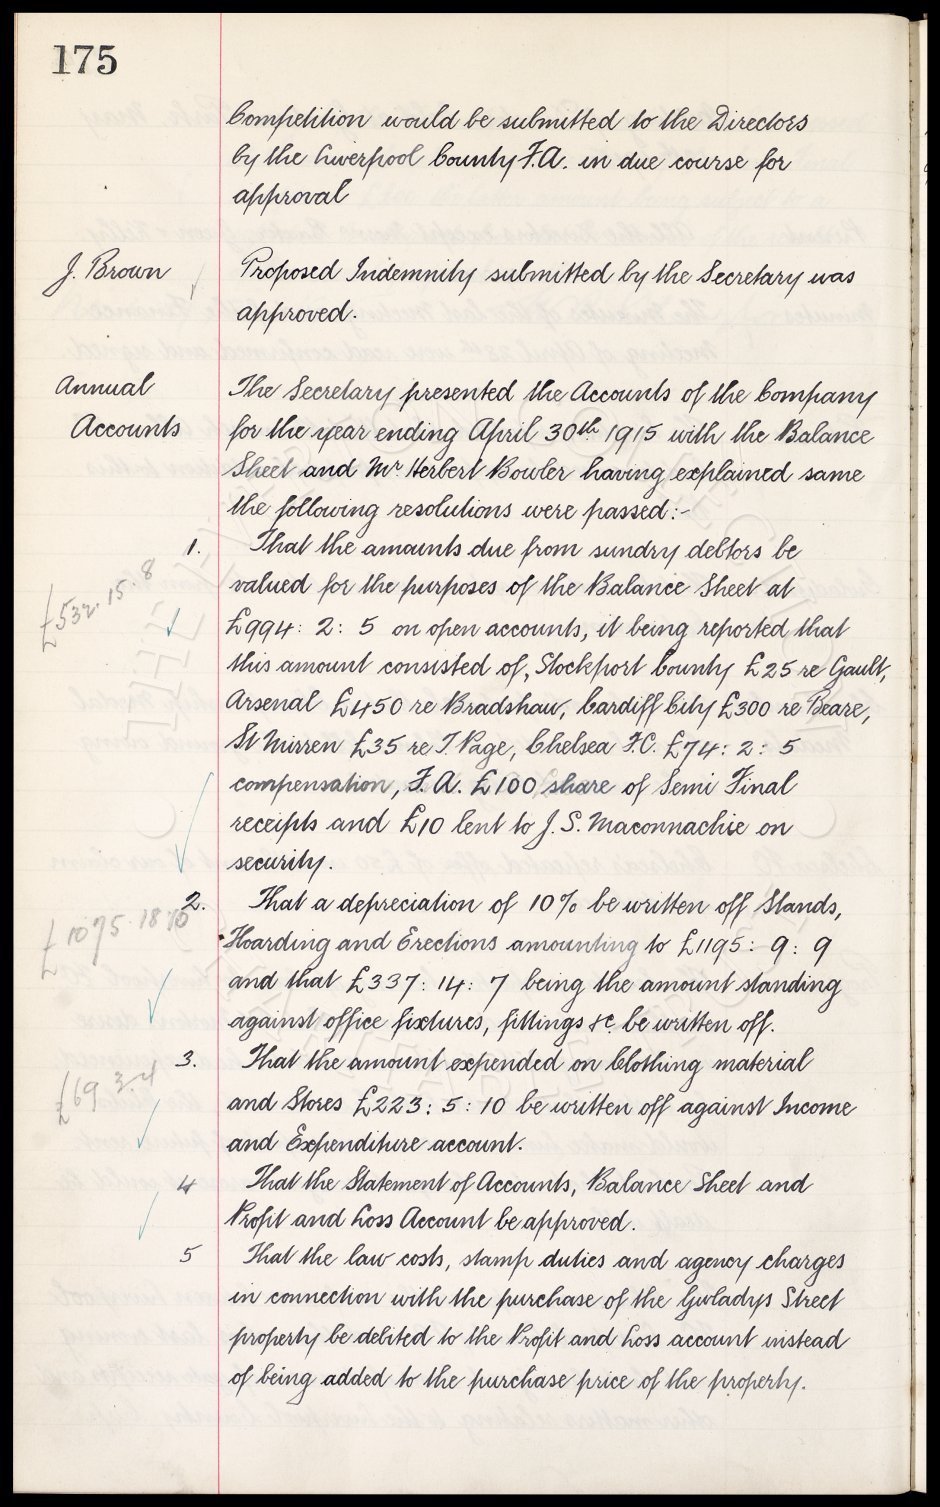 175
Competition would be submitted to the Directors
by the Liverpool County F.A. in due course for
approval
J. Brown
Proposed Indemnity submitted by the Secretary was
approved.
Annual
Accounts
The Secretary presented the Accounts of the Company
for the year ending April 30th 1915 with the Balance
Sheet and Mr. Herbert Bowler having explained same
the following resolutions were passed:-
1. That the amounts due from sundry debtors be
£532. 15. 8
valued for the purposes of the Balance Sheet at
£994: 2: 5 on open accounts, it being reported that
this amount consisted of, Stockport County £25 re Gault,
Arsenal £450 re Bradshaw, Cardiff City £300 re Beare,
St Mirren £35 re T. Page, Chelsea F.C. £74: 2: 5
compensation, F.A. £100 share of Semi Final
receipts and £10 lent to J. S. Maconnachie on
security.
2. That a depreciation of 10% be written off Stands,
£1075. 18
Hoarding and Erections amounting to £1195: 9: 9
and that £337: 14: 7 being the amount standing
against office fixtures, fittings &c. be written off.
3. That the amount expended on Clothing material
£69 3. 4
and Stores £223: 5: 10 be written off against Income
and Expenditure account.
4 That the Statement of Accounts, Balance Sheet and
Profit and Loss Account be approved.
5 That the law costs, stamp duties and agency charges
in connection with the purchase of the Gwladys Street
property be debited to the Profit and Loss account instead
of being added to the purchase price of the property.